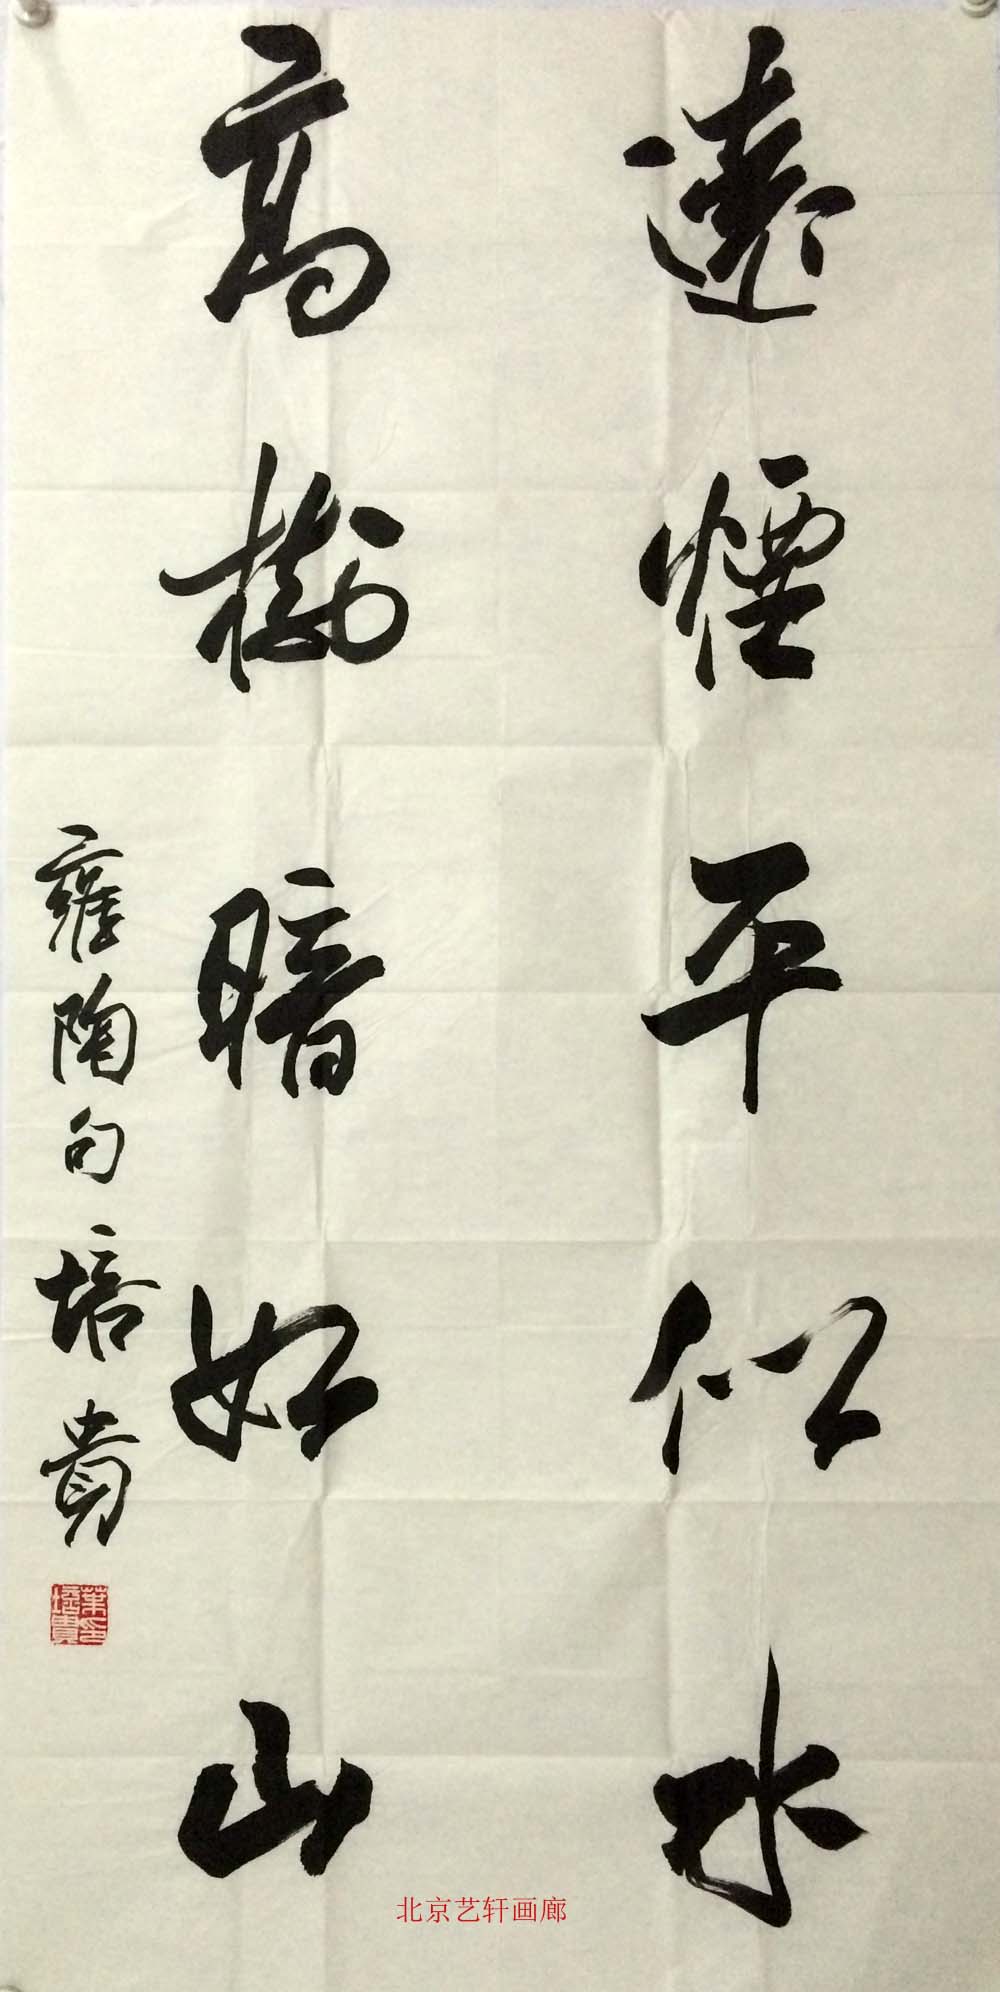 遠煙平似水
高樹暗如山
雍陶句 培貴
葉培貴印
北京艺轩画廊